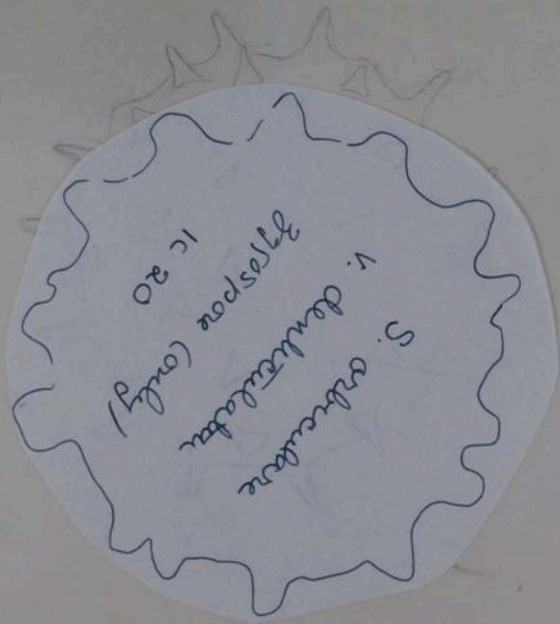 S. orbiculare
V. denticulatum
Zygospore (only)
IC 20